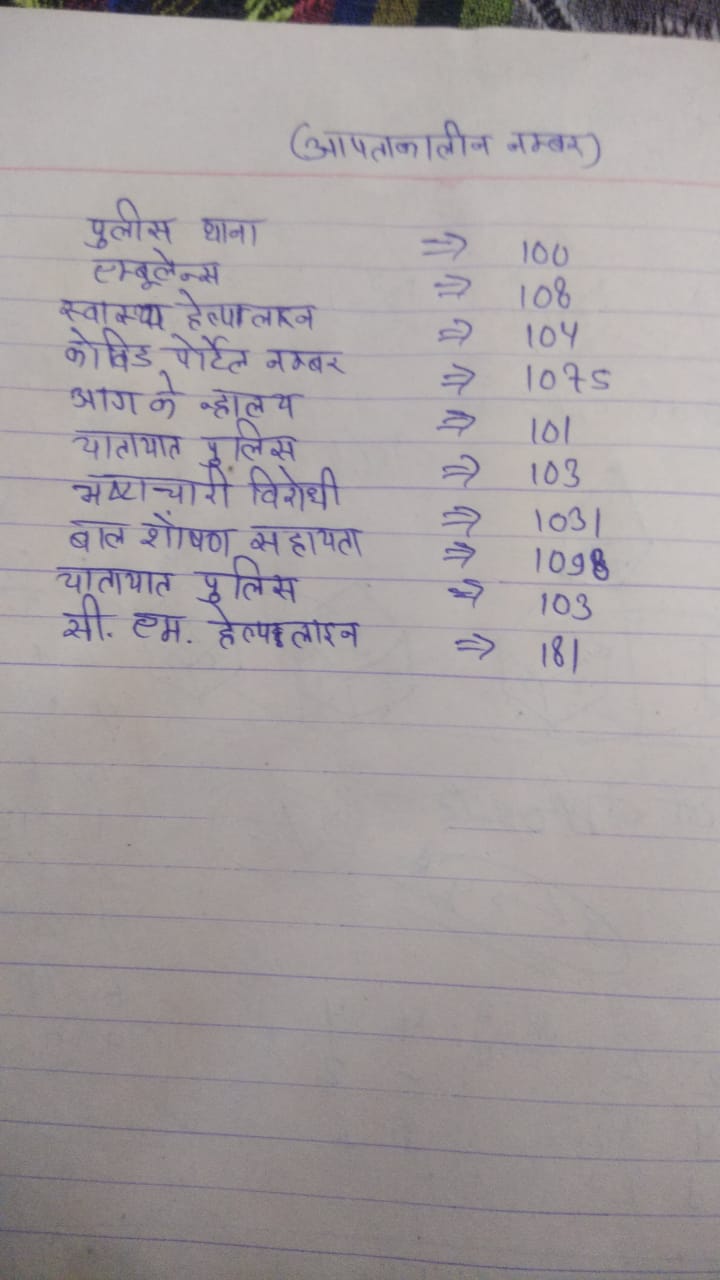 (आपताकालीन नम्बर)
पुलीस थाना ⇒ 100
एम्बूलेन्स ⇒ 108
स्वास्थ्य हेल्पलाइन ⇒ 104
कोविड पोर्टल नम्बर ⇒ 1075
आग के न्हालय ⇒ 101
यातायात पुलिस ⇒ 103
भ्रष्टाचारी विरोधी ⇒ 1031
बाल शौषण सहायता ⇒ 1098
यातायात पुलिस ⇒ 103
सी. एम. हेल्पलाइन ⇒ 181